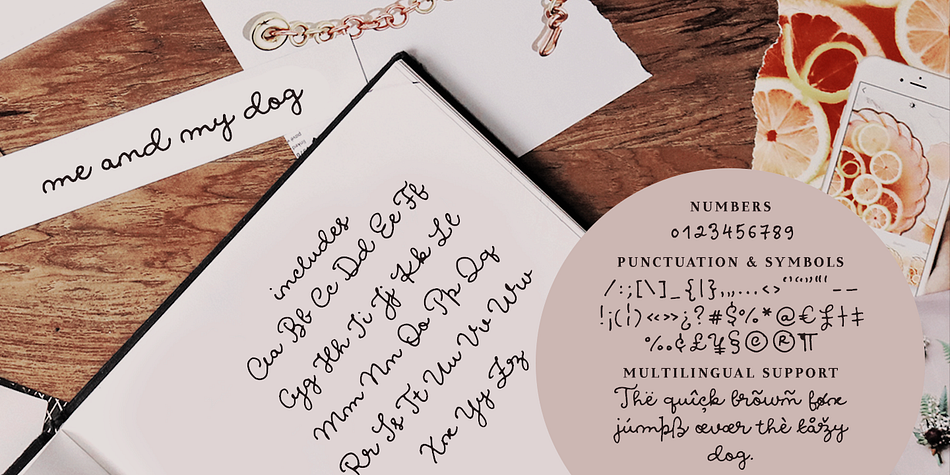 me and my dog
includes
Aa Bb Cc Dd Ee Ff
Gg Hh Ii Jj Kk Ll
Mm Nn Oo Pp Qq
Rr Ss Tt Uu Vv Ww
Xx Yy Zz
NUMBERS
0123456789
PUNCTUATION & SYMBOLS
/:;[\]_{|},„...‹›"''""'" –—
!¡(¦)«»¿?#$%*@€£†‡
‰¢£¥§©®¶
MULTILINGUAL SUPPORT
Thë quîçk brõwñ føxe
júmpß œvær thè låžy
dog.